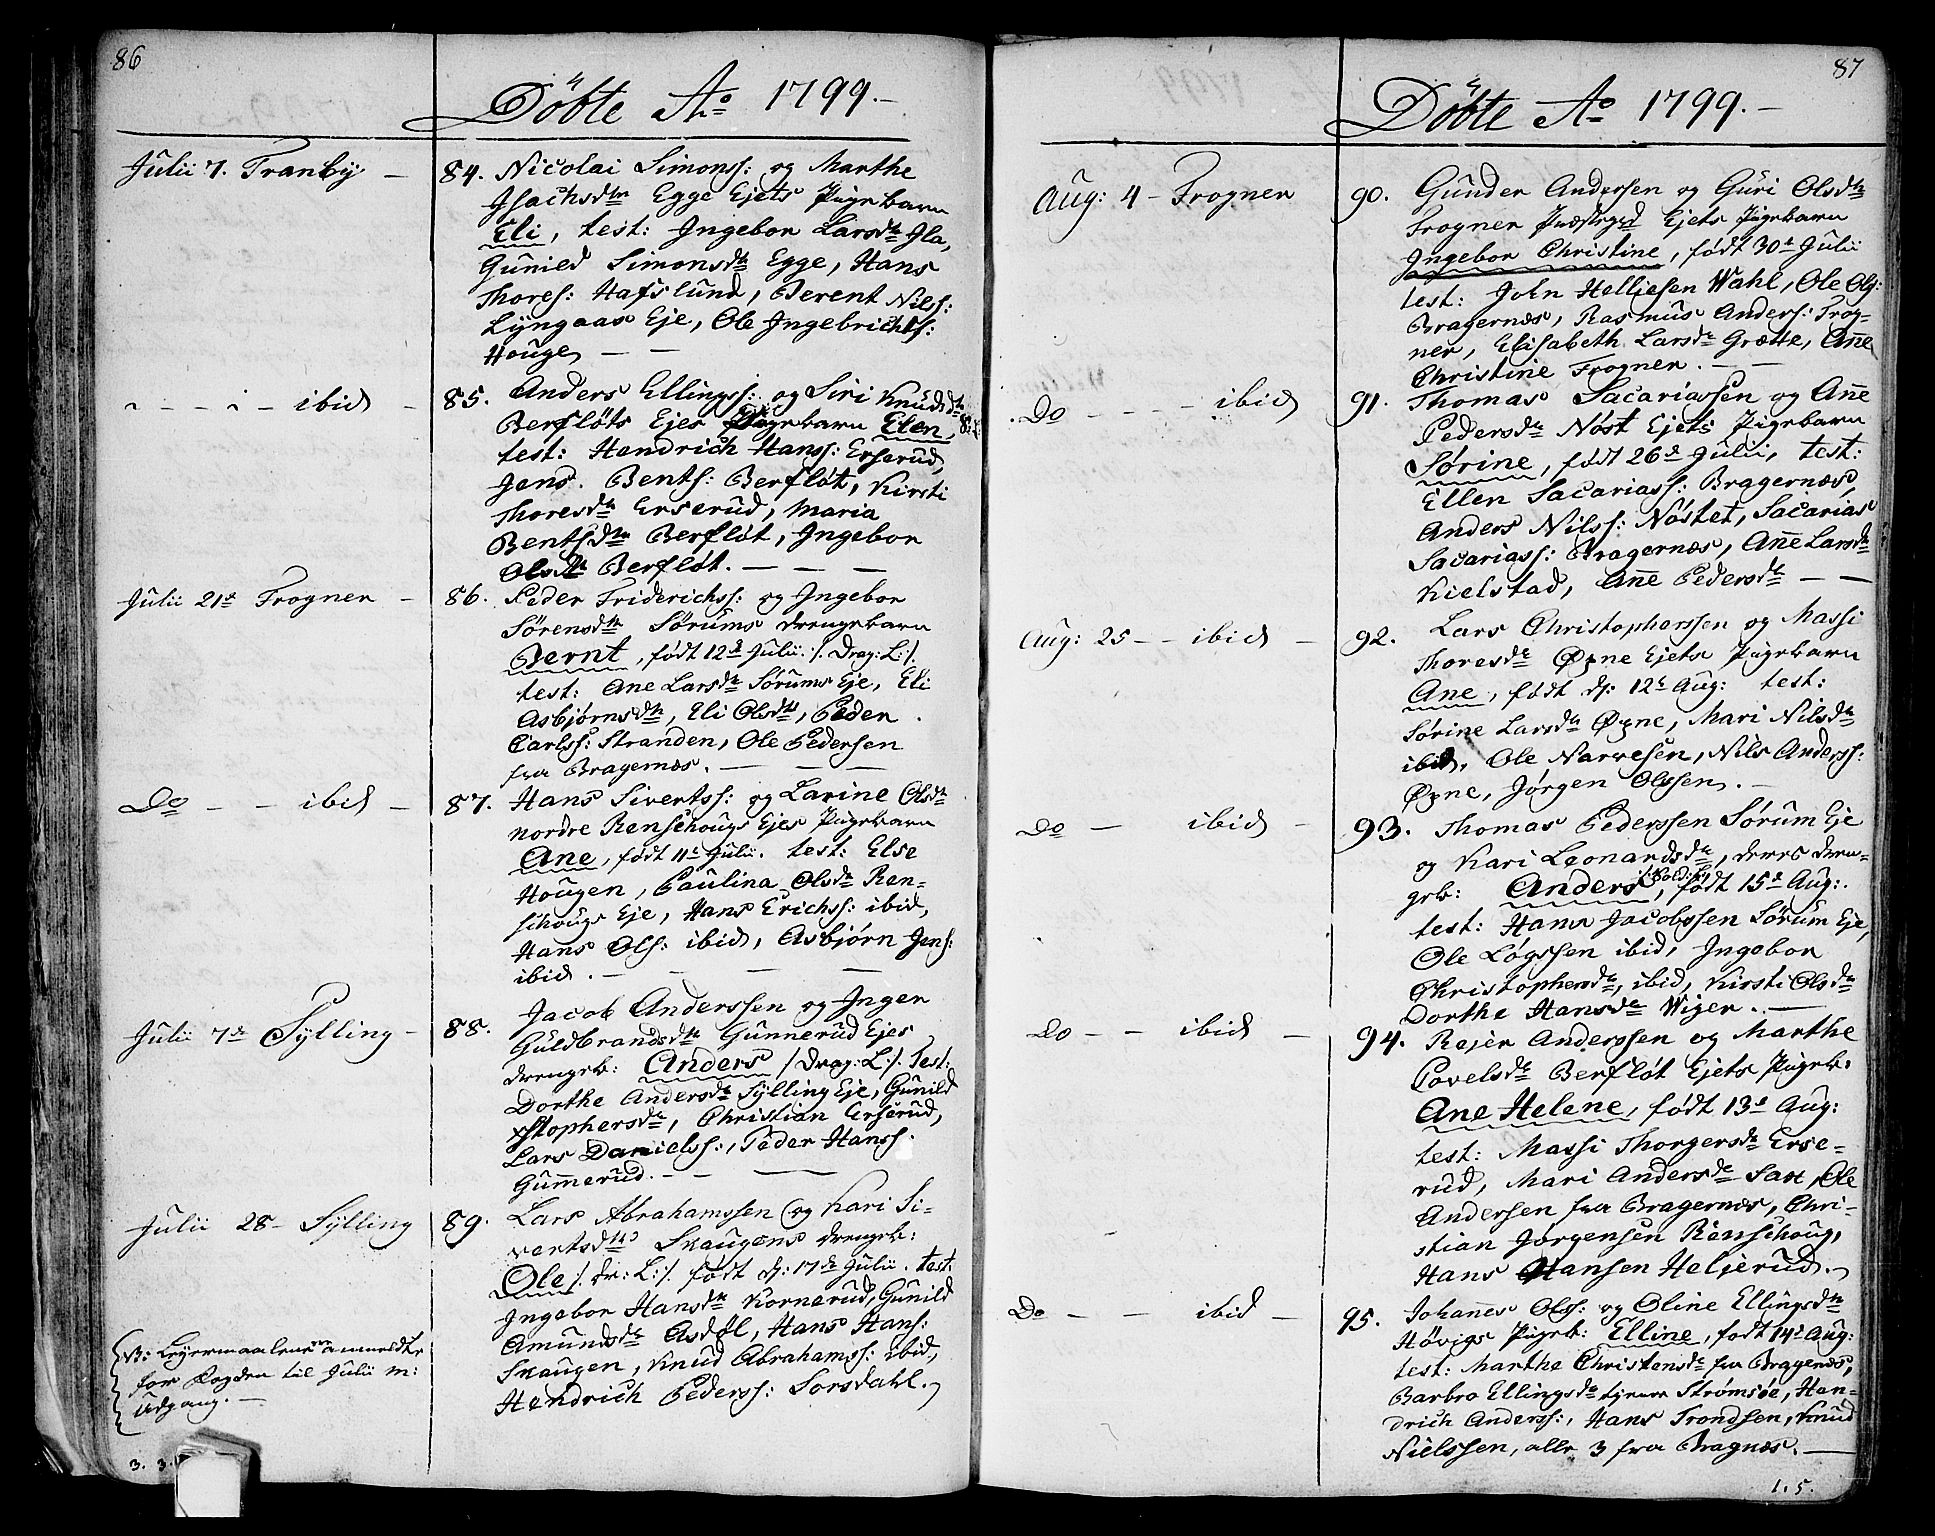 86
Döbte Ao 1799.–
Julii 7. Tranby – 84. Nicolai Simonss: og Marthe
Isachsdtr Egge Ejets Pigebarn
Eli, test: Ingebor Larsdtr
Gunild Simonsdtr Egge, Hans
Thoress: Hafslund, Berent Nilss:
Lÿngaas Eje, Ole Ingebrichts:
Houge – –
– – – ibid – 85. Anders Ellingss: og Siri Knudsdtr
Berfløts Ejes Pigebarn Elen,
test: Hendrich Hanss: Erserud,
Jens Bentss: Berfløt, Kirsti
Thoresdtr Erserud, Maria
Bentsdtr Berfløt, Ingebor
Olsdtr Berfløt. – – –
Julii 21de Frogner – 86. Peder Friderichss: og Ingebor
Sörensdtr Sörums drengebarn
Bernt, født 12te Julii ./. Drag: L:/.
test: Ane Larsdtr Sørums Eje, Eli
Asbjørnsdtr, Eli Olsdtr, Peder
Carlss: Stranden, Ole Pedersen
fra Bragernæs. – – –
Do – – ibid – 87. Hans Sivertss: og Larine Olsdtr
nordre Renschougs Ejes Pigebarn
Ane, født 11te Julii. test: Else
Hougen, Paulina Olsdtr Ren-
schougs Eje, Hans Erichss: ibid,
Hans Ols: ibid, Asbjørn Jens:
ibid. – – – –
Julii 7de Sÿlling – 88. Jacob Anderssen og Inger
Guldbrandsdtr Gunnerud Ejes
drengeb: Anders /Drag: L:/. Test:
Dorthe Andersdtr Sÿlling Eje, Gunild
Xstophersdtr, Christian Erserud,
Lars Danielss:, Peder Hanss:
Gunnerud. – – –
Julii 28 – Sÿlling 89. Lars Abrahamssen og Kari Si-
vertsdtr Skaugens drengeb:
Ole /. dr: L:/. født d: 17de Julii. test:
Ingebor Hansdtr Kornerud, Gunild
Amundsdtr Asdøl, Hans Hans:
Skaugen, Knud Abrahamss: ibid,
Hendrich Pederss: Sorsdahl.
NB: Leyermaalene anmeldte
for Fogden til Julii m:
Udgang. –
3. 3.
87
Döbte Ao 1799.–
Aug: 4 – Frogner 90. Gunder Andersen og Guri Olsdtr
Frogner Præstegrd Ejets Pigebarn
Ingebor Christine, født 30te Julii
test: John Helljesen Wahl, Ole Ols:
Bragernæs, Rasmus Anders: Frog-
ner, Elisabeth Larsdtr Grøtte, Ane
Christine Frogner. – –
Do – – – – ibid 91. Thomas Sacariassen og Ane
Pedersdtr Nøst Ejets Pigebarn
Sörine, født 26de Julii, test:
Ellen Sacariass: Bragernæs,
Anders Nilss: Nøstet, Sacarias
Sacariass: Bragernæs, Ane Larsdtr
Kielstad, Ane Pedersdtr – –
Aug: 25 – – ibid – 92. Lars Christopherssen og Massi
Thoresdtr Øgne Ejets Pigebarn
Ane, født d: 12te Aug: test:
Sørine Larsdtr Øgne, Mari Nilsdtr
ibid, Ole Narvesen, Nils Anderss:
Øgne, Jørgen Olssen. –
Do – ibid – 93. Thomas Pederssen Sørum Eje
og Kari Leonardsdtr, deres dren-
geb: Anders, født 15de Aug:
test: Hans Jacobssen Sørum Eje,
Ole Løgssen ibid, Ingebor
Christophersdtr, ibid, Kirsti Olsdtr
Dorthe Hansdtr Wijer. –
Do – – ibid – 94. Rejer Anderssen og Marthe
Povelsdtr Berfløt Ejets Pigeb:
Ane Helene, født 13de Aug:
test: Massi Thorgersdtr Erse-
rud, Mari Andersdtr Sast, Ole
Andersen fra Bragernæs, Chri-
stian Jørgensen Renschoug,
Hans Hansen Heljerud. –
Do – – ibid – 95. Johannes Olss: og Oline Ellingsdtr
Hövigs Pigeb: Elline, født 14de Aug:
test: Marthe Christensdtr fra Bragernæs,
Barbro Ellingsdtr Strømsøe, Han-
drich Anderss:, Hans Trondsen, Knud
Nielssen, alle 3 fra Bragnæs. –
1. 5.